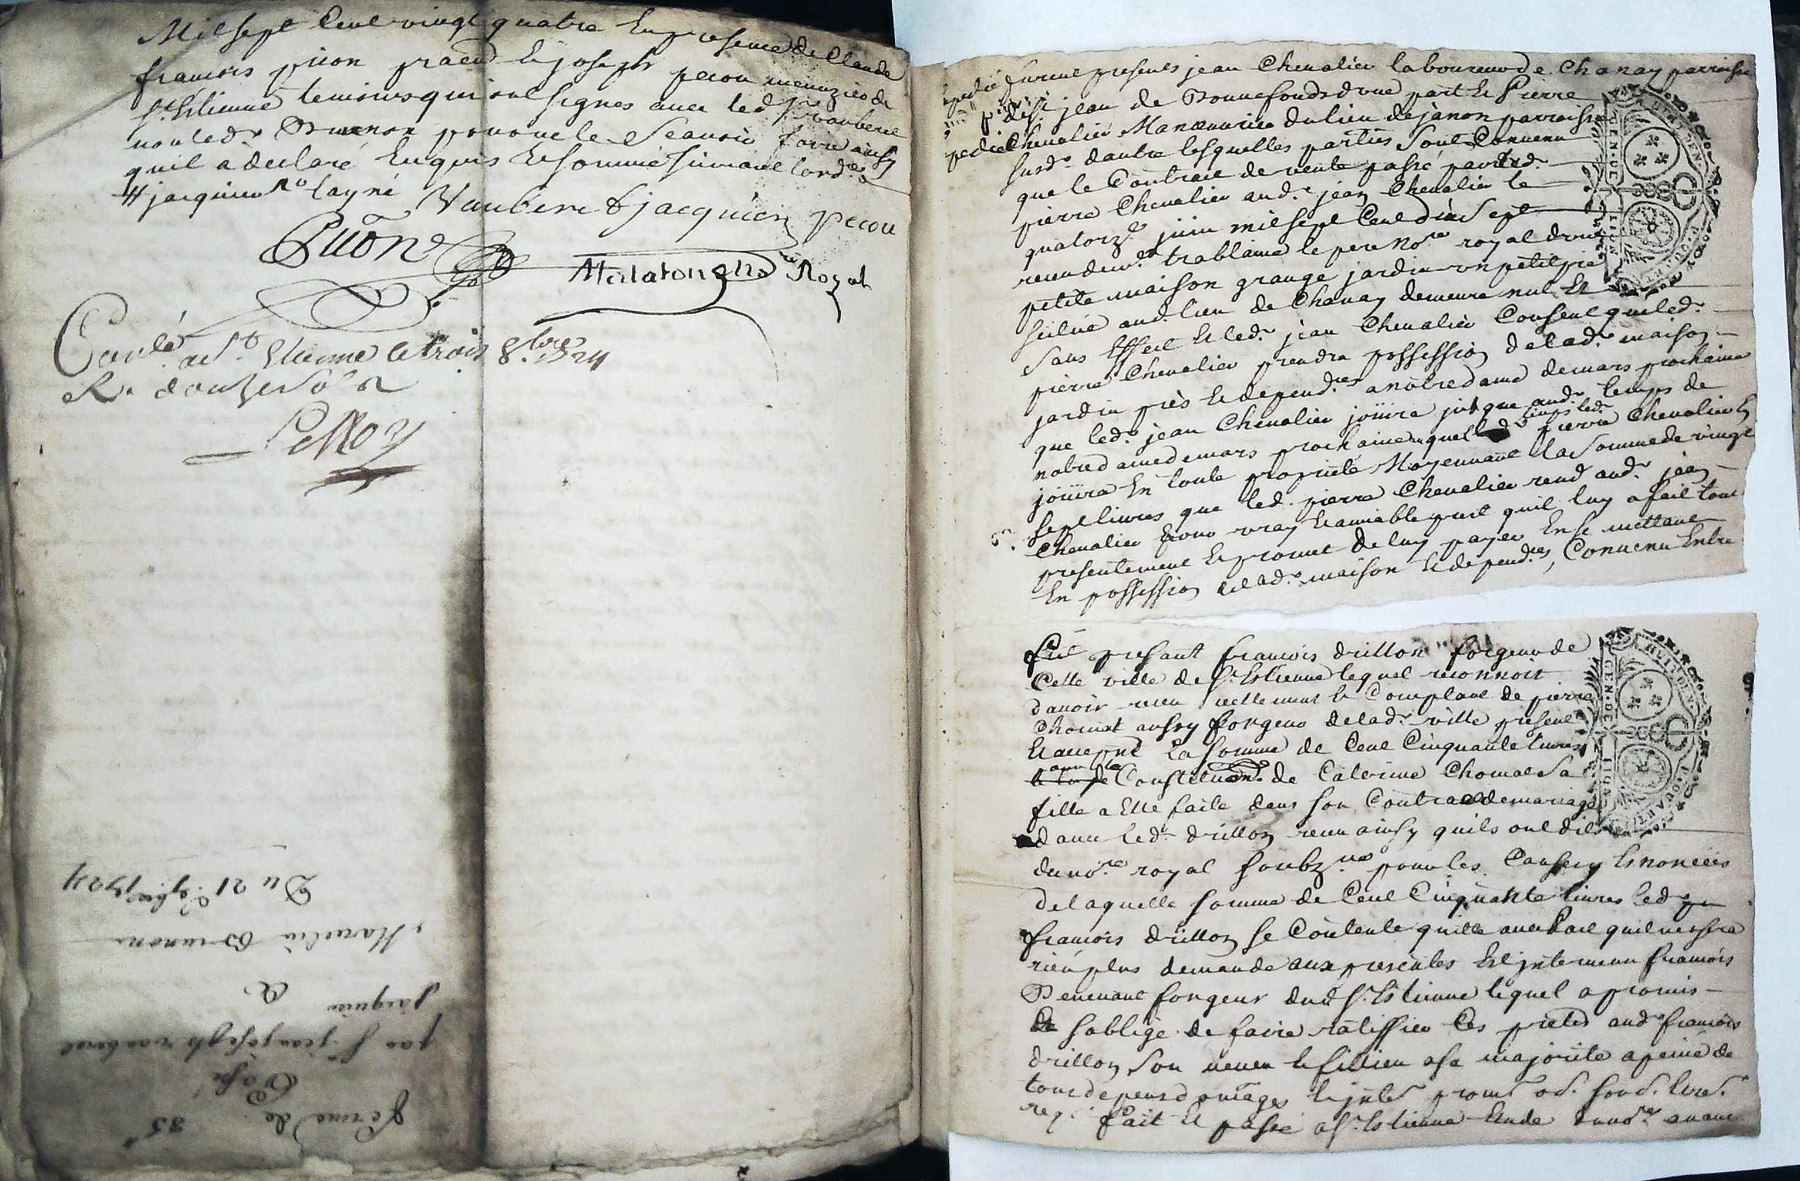 Mil sept Cent vingt quatre En presence de Claude
francois piion praen Et joseph pecou menuzier de
St. Estienne temoins qui ont signes avec led. Sr. vauberet
non led. Brunon pour ne le Scavoir faire ainsy
quil a declaré Enquis Et sommé suivant lord.
# jacquier layné Vauberet & jacquier pecou
Matalon Royal
Conlé a St. Etienne le trois 8bre 1724
R. douze sols
ferme de 35
Passé
par Sr. jean joseph vauberet
jacquier
A
Marcelin Brunon
Du 21 7bre 1724
furent presents jean Chevalier laboureur de Chanay parroisse
de St. jean de Bonnefonds dune part Et Pierre
Chevalier Manoeuvrier du lieu de janon parroisse
susd. dautre lesquelles parties sont Convenu
que le Contrait de vente passé par led.
pierre Chevalier aud. jean Chevalier le
quatorze juin mil sept Cent dix Sept
recu deud. trablaine le pere nore. royal dune
petite maison grange jardin un petit pré
scitué aud. lieu de Chanay demeure nul Et
Sans Effect Et led. jean Chevalier Consent que led.
pierre Chevalier prendra possession de lad. maison
jardin près Et depend.es a notre dame de mars prochaine
que led. jean Chevalier joüira jusque aud. temps de
notre dame de mars prochaine auquel temps led. pierre Chevalier En
joüira En toute proprieté Moyennant la somme de vingt
sept livres que led. pierre Chevalier rend aud. jean
Chevalier pour vray Et amiable pret quil luy a fait tout
presentement Et promet de luy payer En se mettant
En possession de lad. maison Et depend.es, Convenu Entre
fut present francois drillon forgeur de
Cette ville de St. Estienne lequel reconnoit
davoir recu reellement Et Comptant de pierre
Chomat aussy forgeur de lad. ville present
Et acceptt. La somme de Cent Cinquante livres
pour la Constituon. de Caterine Chomat Sa
fille a Elle faite dans son Contract de mariage
avec led. drillon recu ainsy quils ont dit
du nore. royal soubz.né pour les Causes y Enoncées
de laquelle somme de Cent Cinquante livres led.
francois drillon se Contente quitte avec Pact quil ne sera
rien plus demandé aux presentes Est intervenu francois
Thevenant forgeur dud. St. Estienne lequel a promis
Et soblige de faire ratiffier Ces prtes. aud. francois
drillon son neveu Et fillieu a sa majorité a peine de
tous depens domages Et jnts. prom. ob. soub. & ren.
fait Et passé a St. Estienne Etude dunore. avant